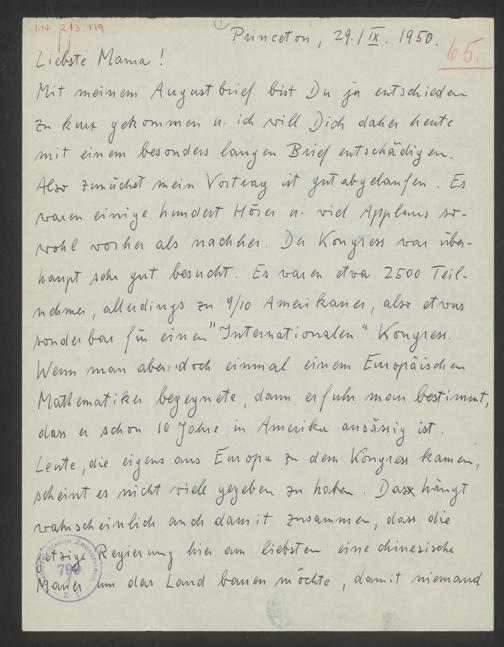 I.N. 213.179
Princeton, 29./IX. 1950.
65.
Liebste Mama!
Mit meinem Augustbrief bist Du ja entschieden
zu kurz gekommen u. ich will Dich daher heute
mit einem besonders langen Brief entschädigen.
Also zunächst mein Vortrag ist gut abgelaufen. Es
waren einige hundert Hörer u. viel Applaus so-
wohl vorher als nachher. Der Kongress war über-
haupt sehr gut besucht. Es waren etwa 2500 Teil-
nehmer, allerdings zu 9/10 Amerikaner, also etwas
sonderbar für einen "Internationalen" Kongress.
Wenn man aber doch einmal einem Europäischen
Mathematiker begegnete, dann erfuhr man bestimmt,
dass er schon 10 Jahre in Amerika ansässig ist.
Leute, die eigens aus Europa zu dem Kongress kamen,
scheint es nicht viele gegeben zu haben. Das hängt
wahrscheinlich auch damit zusammen, dass die
jetzige Regierung hier am liebsten eine chinesische
Mauer um das Land bauen möchte, damit niemand